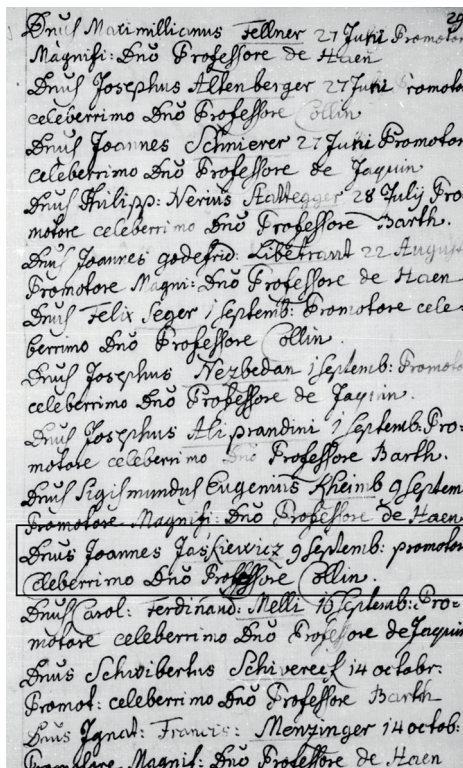 29
Dnus Maximillianus Fellner 27 Junii Promotor
Magnifi: Dnō Professore de Haen
Dnus Josephus Altenberger 27 Junii Promoto
celeberrimo Dnō Professore Collin
Dnus Joannes Schnierer 27 Junii Promotor
celeberrimo Dnō Professore de Jaquin
Dnus Philipp: Nerius Stattegger 28 Julij Pro
motore celeberrimo Dnō Professore Barth.
Dnus Joannes godefrid: Libetrant 22 Augus
Promotore Magni: Dnō Professore de Haen
Dnus Felix Seger 1 Septemb: Promotore cele-
berrimo Dnō Professore Collin.
Dnus Josephus Nezbedan 1 Septemb: Promoto
celeberrimo Dnō Professore de Jaquin.
Dnus Josephus Aliprandini 1 Septemb: Pro=
motore celeberrimo Dnō Professore Barth.
Dnus Sigismundus Eugenius Kheimb 9 Septem
Promotore Magnifi: Dnō Professore de Haen
Dnus Joannes Jaśkiewicz 9 Septemb: promotor
celeberrimo Dnō Professore Collin.
Dnus Carol: Ferdinand: Melli 16 Septemb: Pro=
motore celeberrimo Dnō Professore de Jaquin
Dnus Schwibertus Schivereck 14 octobr:
Promot: celeberrimo Dnō Professore Barth
Dnus Ignat: Francis: Menzinger 14 octob:
Promotore Magnif: Dnō Professore de Haen